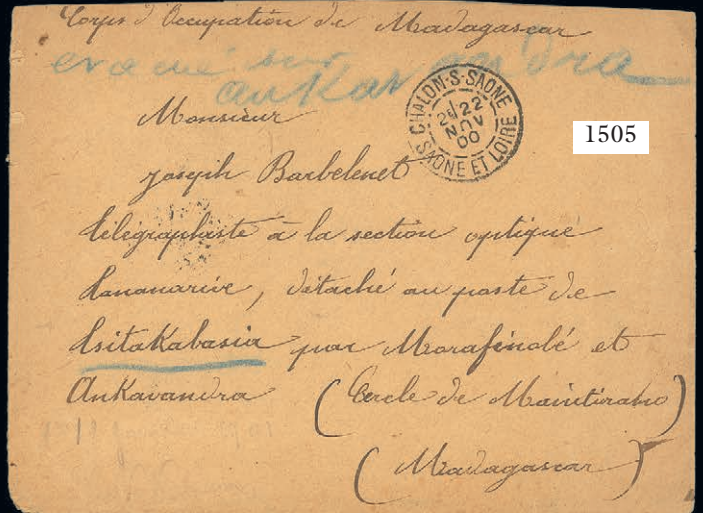 Corps d'Occupation de Madagascar
evacué sur
ankavandra
Monsieur
CHALON-S-SAONE
22
NOV
00
SAONE ET LOIRE
1505
Joseph Barbelenet
télégraphiste à la section optique
Tananarive, détaché au poste de
Tsitakabasia par Marafinolé et
Ankavandra (Cercle de Maintirano)
(Madagascar)